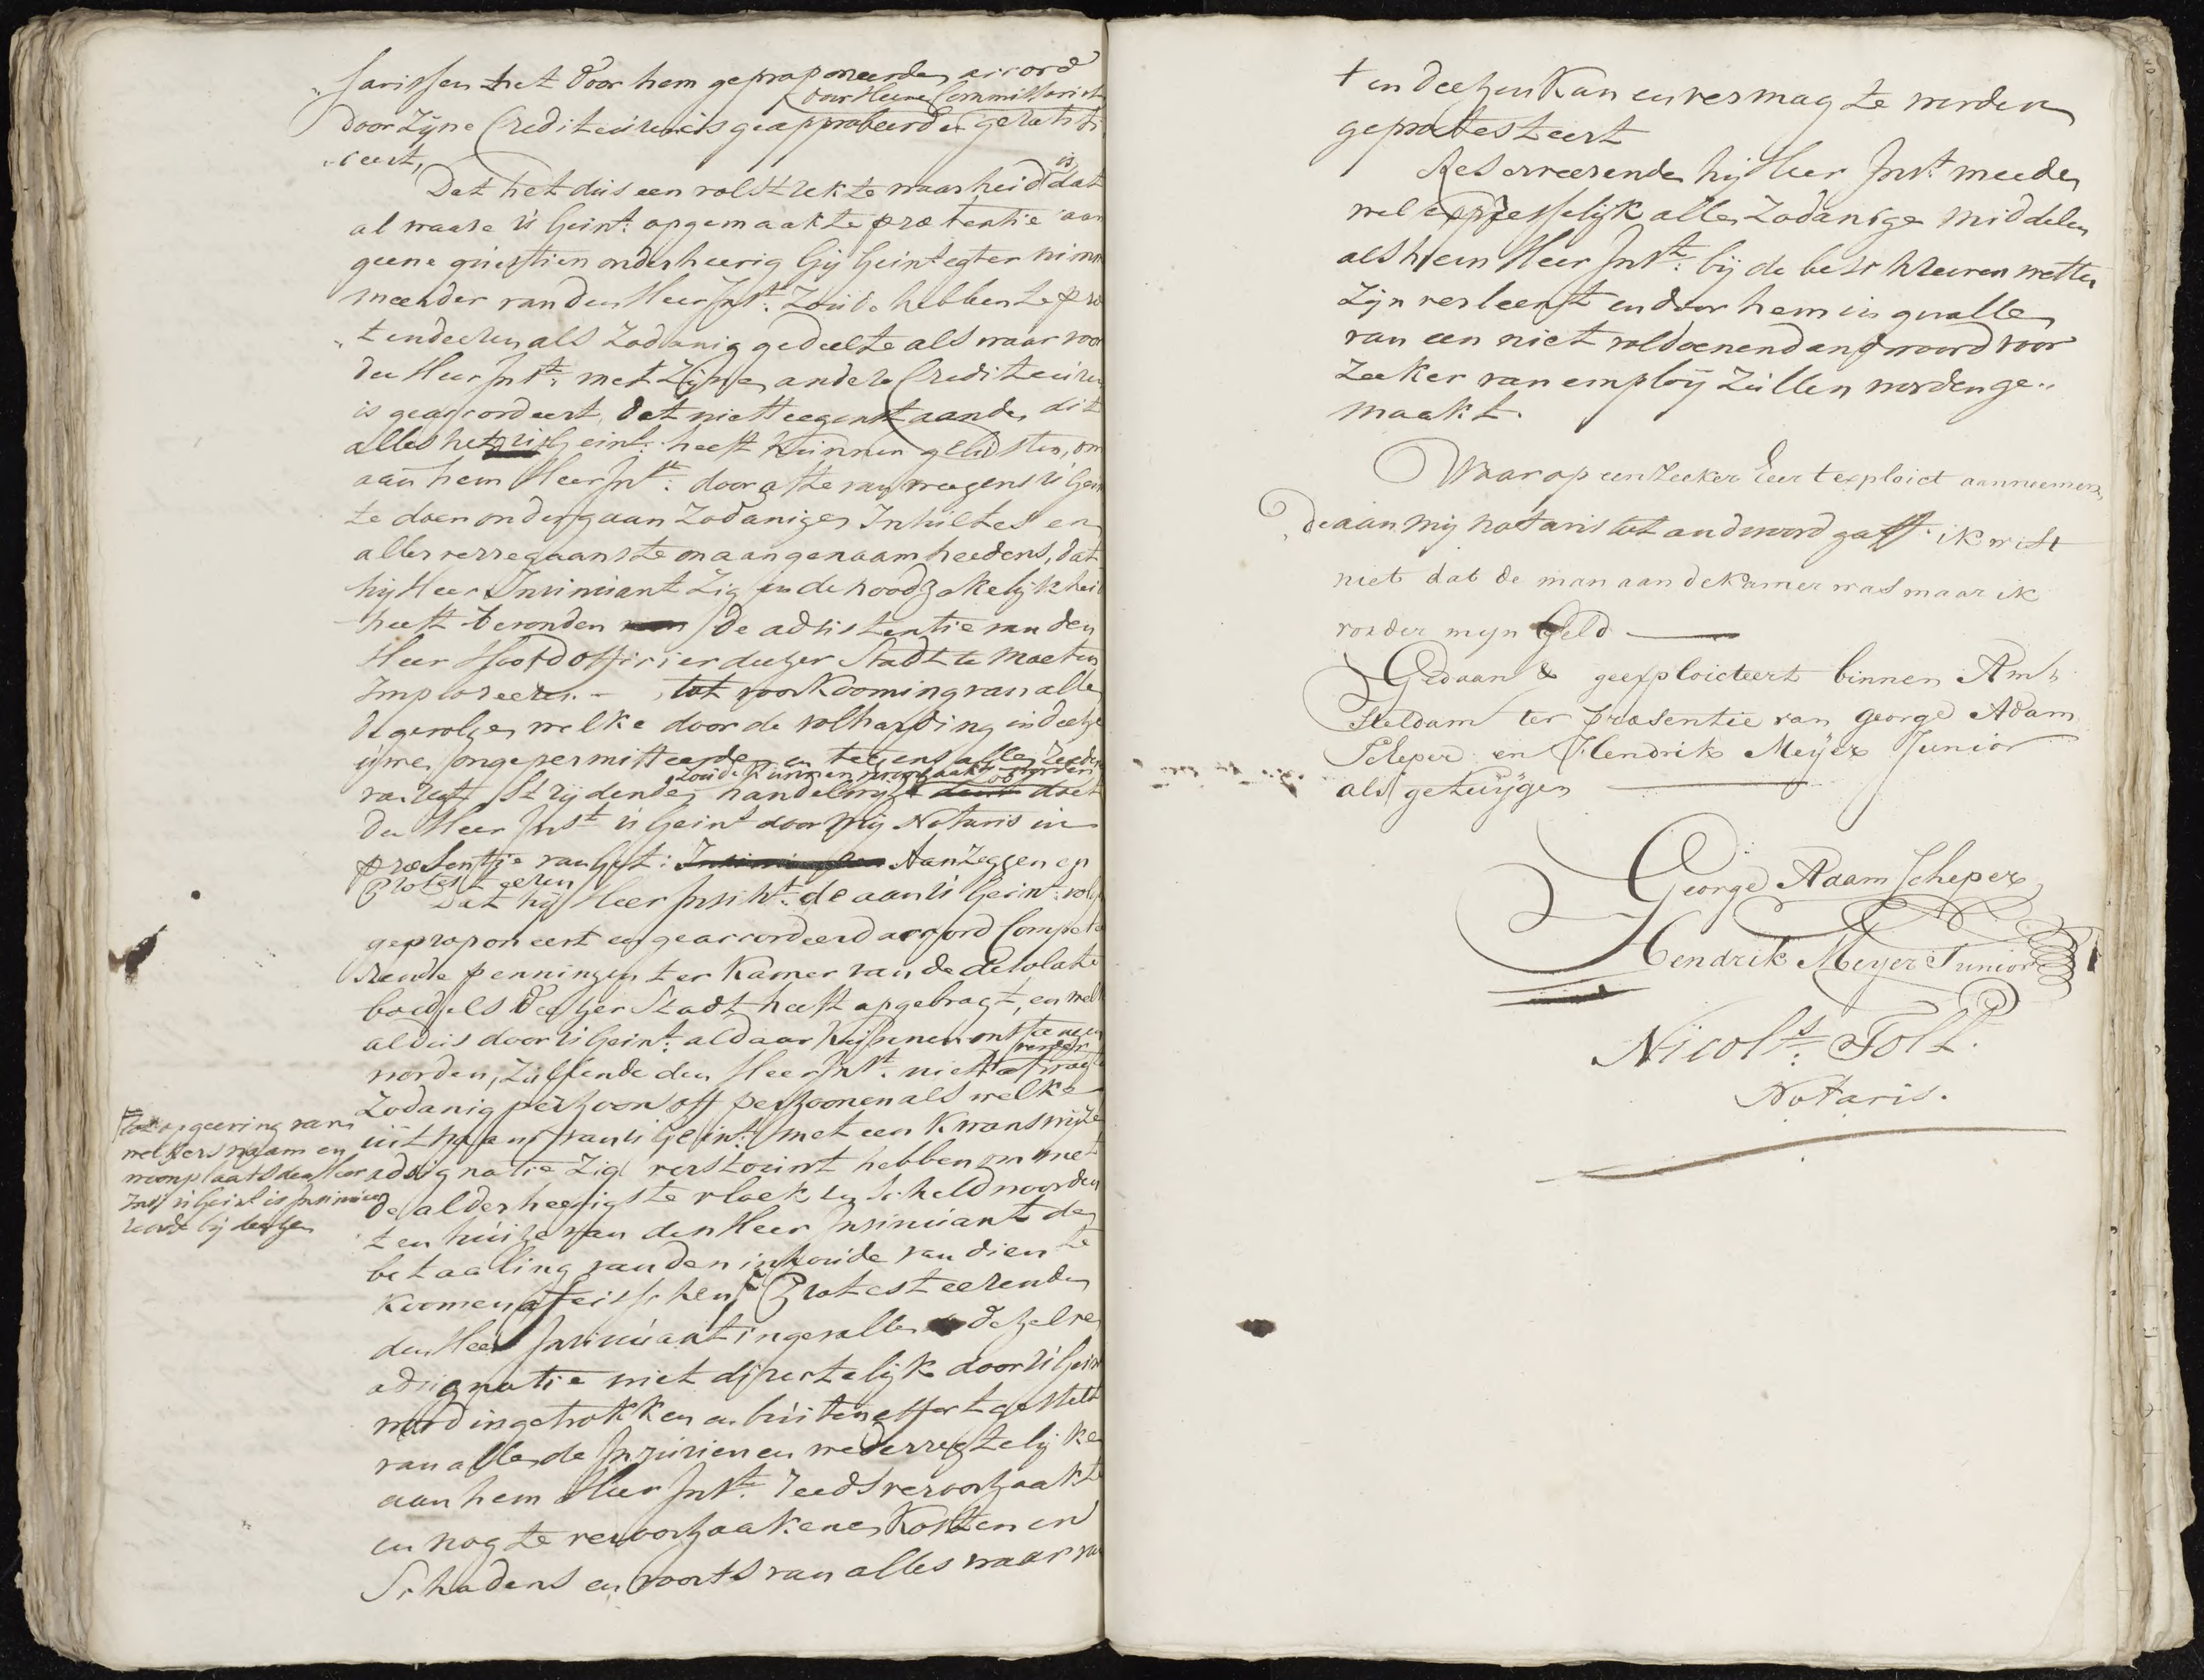 „sarissen het door hem geproponeerde accord
door Heeren Commissariss
door Zyne Crediteuren is geapprobeerd en geratifi
„ceert,
Dat het dus een volstrekte waarheid is dat
al waare U Geint: opgemaakte prætentie aan
geene questien onderheevig Gy Geint egter nimm
meerder van den Heer Inst: Zoude hebben te præ
„tendeeren als Zodanig gedeelte als waar voor
den Heer Inst: met Zyne andere Crediteuren
is geaccordeert, dat niet teegenstaande dit
alles het U Geint: heeft kunnen gelusten, om
aan hem Heer Inst: door of te van weegens U Gein
te doen ondergaan Zodanige Insultes en
alles verregaanste onaangenaamheedens, dat
hy Heer Insinuant Zig in de noodzakelykheid
heeft bevonden de adsistentie van den
Heer Hoofdofficier deezer Stadt te moeten
Imploreeren. — tot voorkooming van alle
de gevolgen welke door de volharding in deeze
uwe ongepermitteerde en teegens alle Zeeden
zoude kunnen veroorzaakt worden
en regt strydende handelwyze doet
den Heer Inst U Geint door my Notaris in
præsentie van Get: Aanzeggen en
Protesteeren
Dat hy Heer Insint: de aan U Geint: volgens
geproponeert en geaccordeerd accord Compete
rende penningen ter Kamer van de desolate
boedels deezer Stadt heeft opgebragt, en welke
aldus door U Geint: aldaar kunnen ontfangen
worden, Zullende den Heer Inst: niet verder
Zodanig perzoon off perzoonen als welke
uit naam van U Geint: met een kwanswyze
adsignatie Zig verstouwt hebben om met
de alderheevigste vloek en scheldwoorden
ten huize van den Heer Insinuant de
betaaling van den inhoude van dien te
koomen afeisschen, Protesteerende
den Heer Insinuant ingevalle dezelve
adsignatie niet directelyk door U Geint
werd ingetrokken en buiten effect gestelt
van alle de Injurien en wederregtelyke
aan hem Heer Inst: reeds veroorzaakte
en nog te veroorzaakene Kosten en
Schadens en voorts van alles waar va
tot opgeeving van
welkers naam en
woonplaats den Heer
Inst U Geint is Insinuee
rende by deezen
† in deezen kan en vermag te werden
geprotesteert
Reserveerende hy Heer Inst: meede
wel expresselyk alle Zodanige middelen
als hem Heer Inst: by de beschreeven wetten
Zyn verleent en door hem in gevalle
van een niet voldoenend andwoord voor
Zeeker van employ Zullen werden ge„
maakt.
Waar op een Zeeker Eert exploict aanneemen„
„de aan my notaris tot andwoord gaff. ik wist
niet dat de man aan de kamer was maar ik
vorder myn Geld —
Gedaan & geexploicteert binnen Am„
steldam ter præsentie van George Adam
Scheper en Hendrik Meyer Junior
als getuygen —
George Adam Scheper
Hendrik Meyer Junior
Nicols: Tolt.
Notaris.